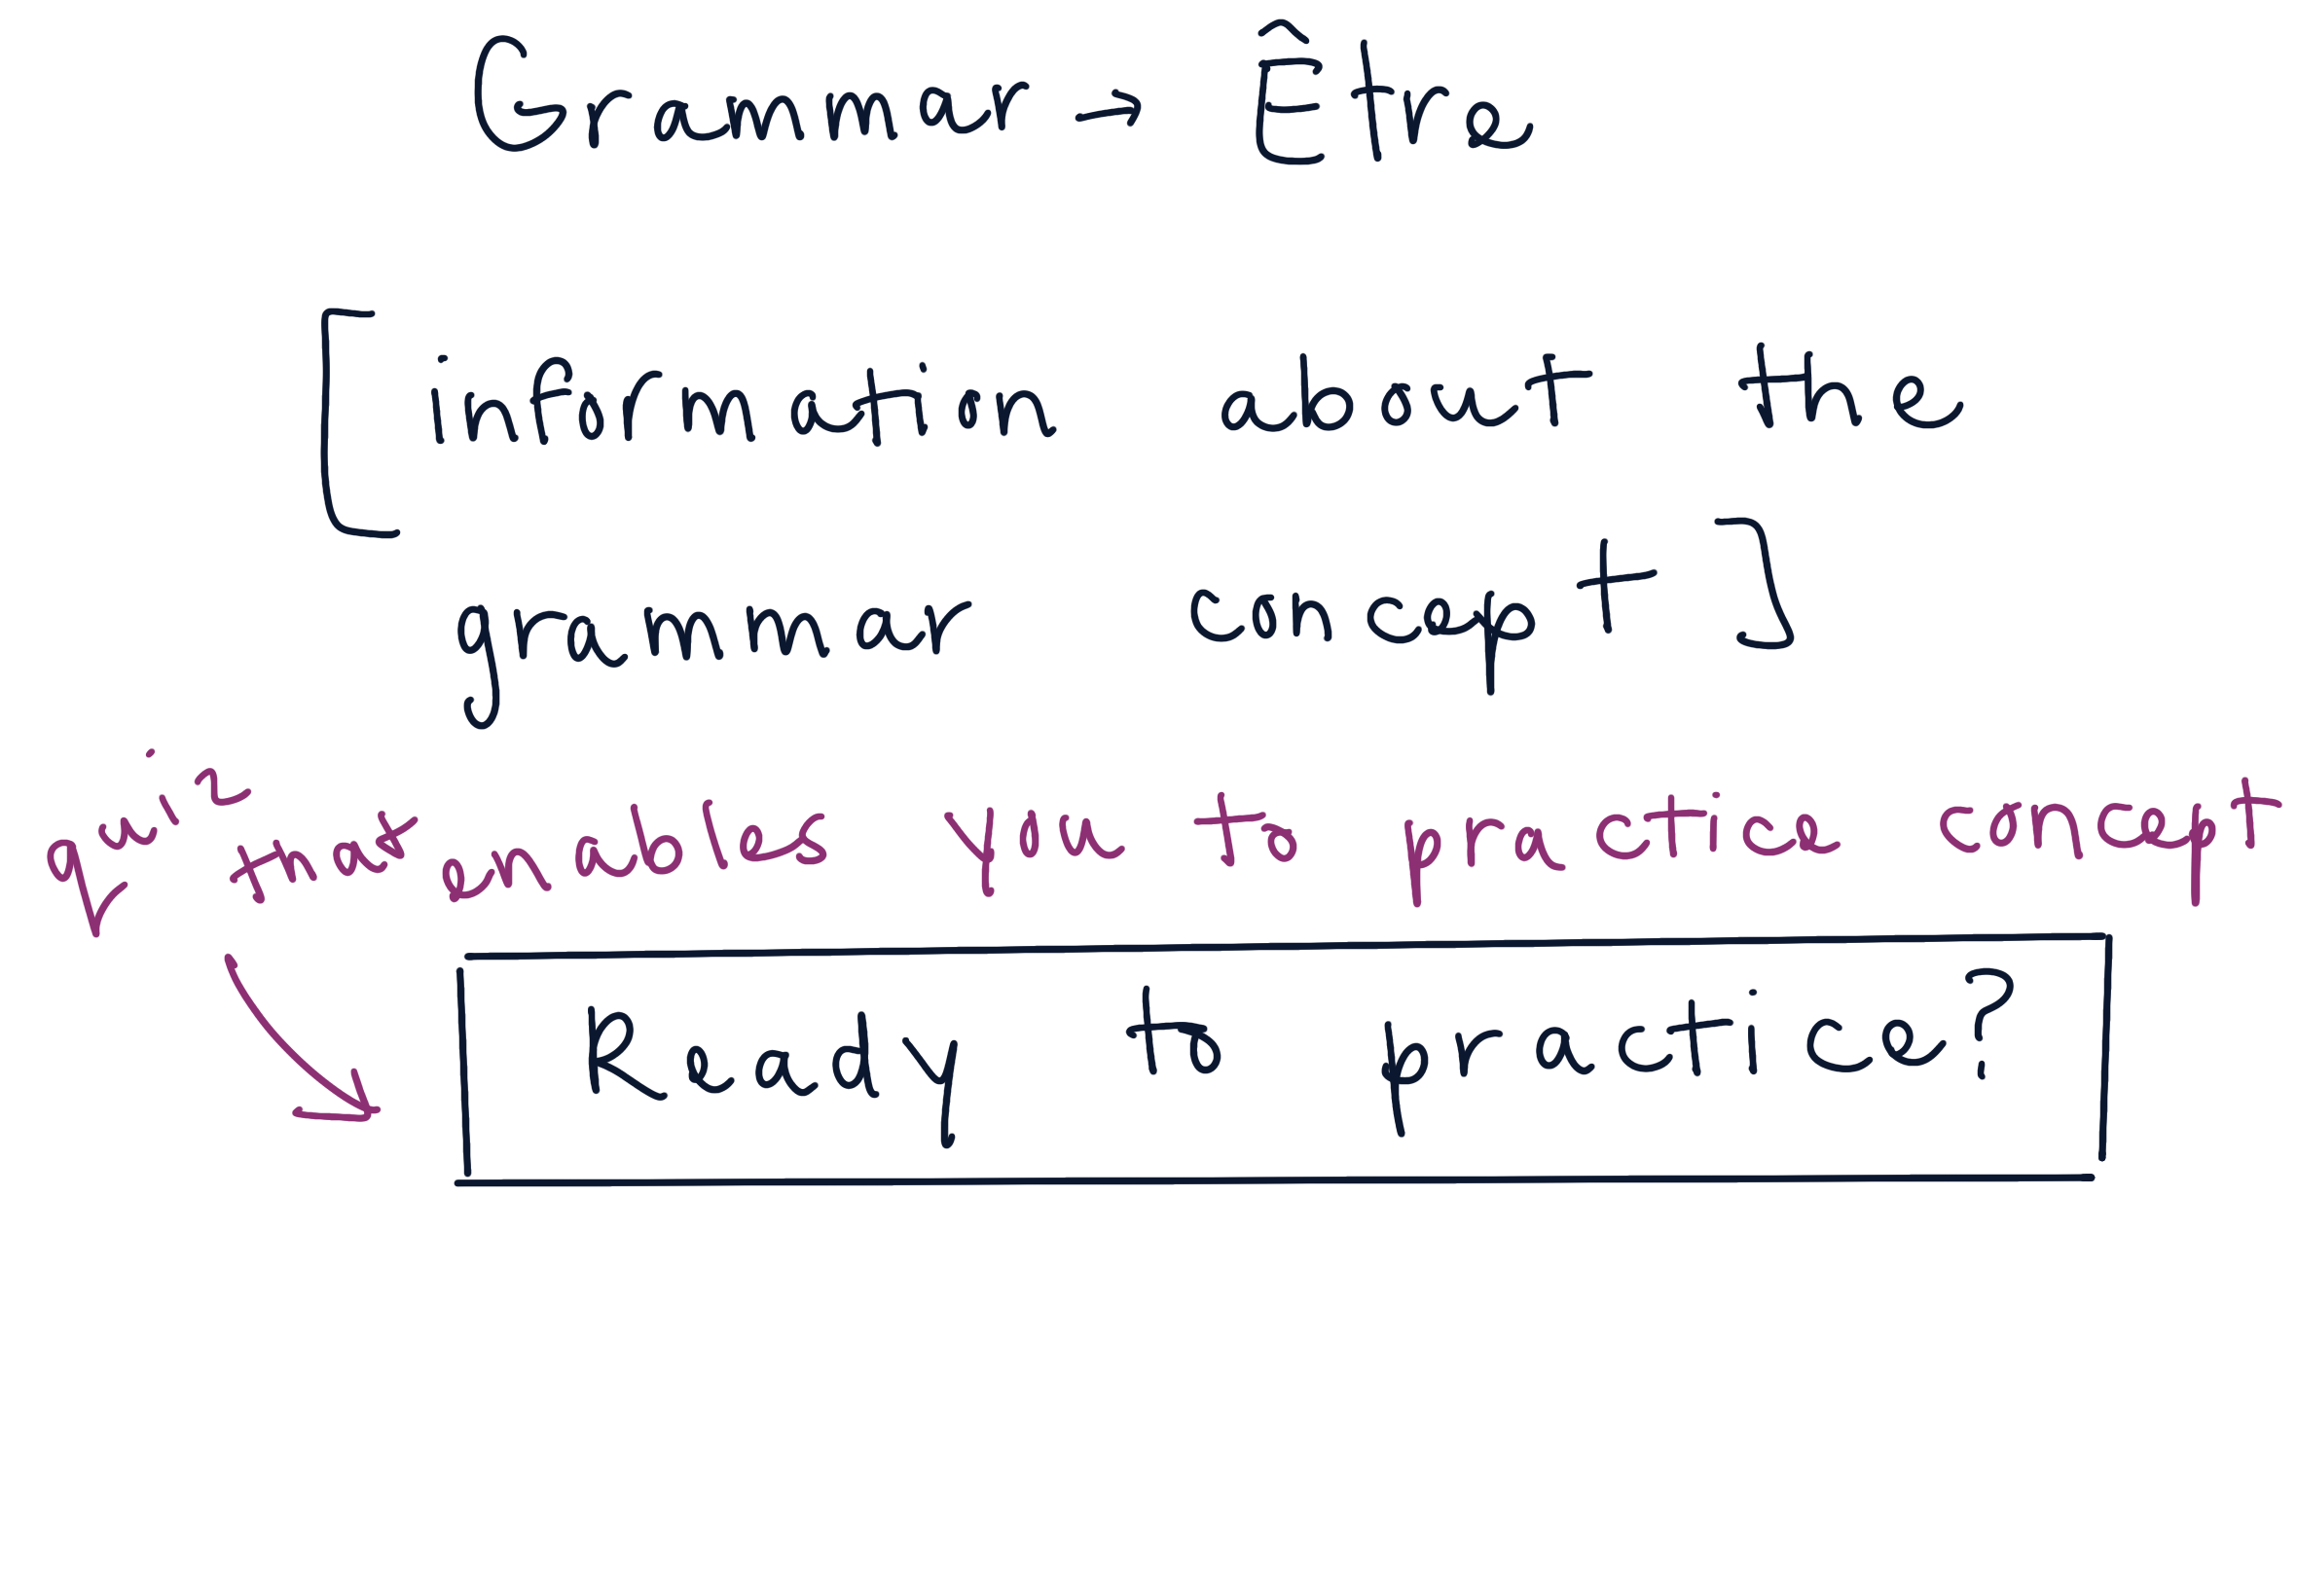 Grammar → Être
[information about the
grammar concept]
quiz that enables you to practice concept
Ready to practice?